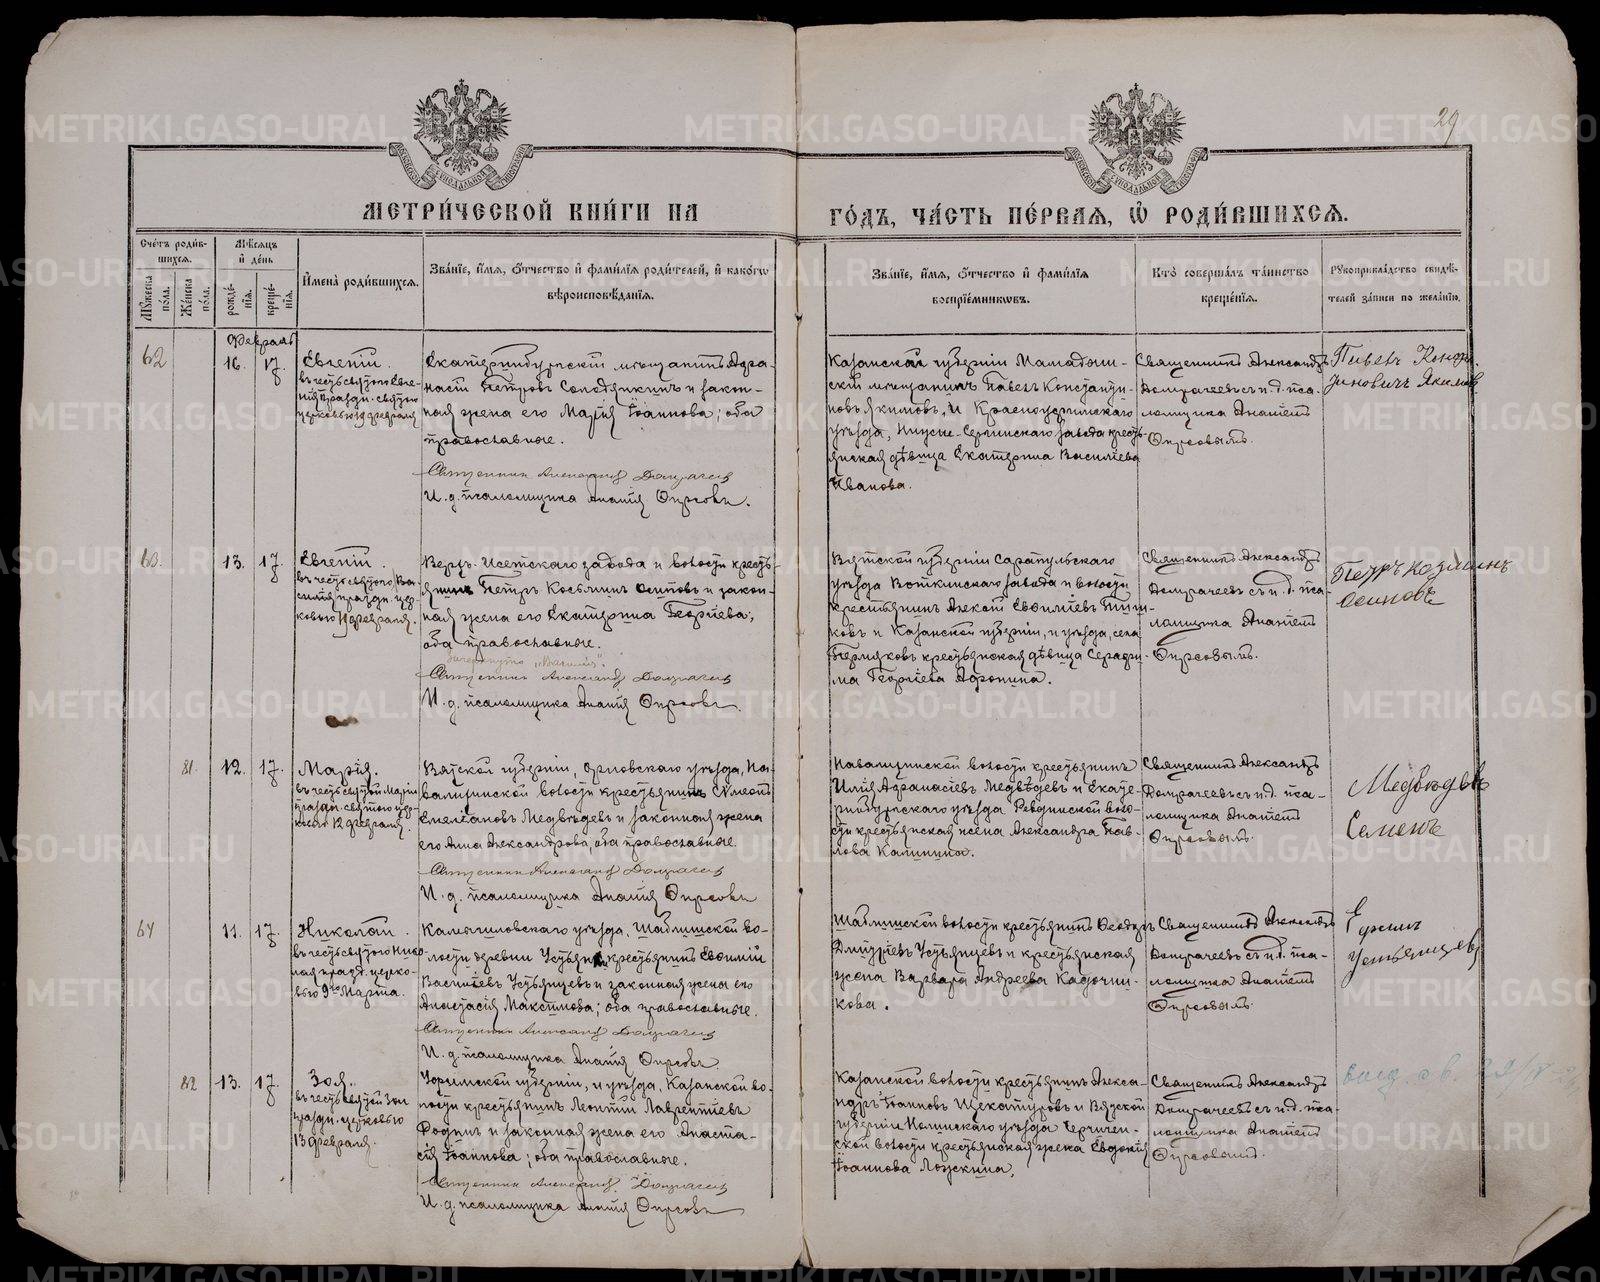 29
МЕТРИ́ЧЕСКОЙ КНИ́ГИ НА
ГО́ДЪ, ЧА́СТЬ ПЕ́РВАЯ, Ѡ҆ РОДИ́ВШИХСЯ.
Сче́тъ роди́в-
шихся.
Му́жеска
по́ла.
Же́нска
по́ла.
Мѣ́сяцъ
и҆ де́нь
рожде́-
нїя.
креще́-
нїя.
И҆мена̀ роди́вшихся.
Зва́нїе, и҆́мя, ѻ҆́тчество и҆ фами́лїя роди́телей, и҆ како́гѡ
вѣроисповѣ́данїя.
Зва́нїе, и҆́мя, ѻ҆́тчество и҆ фами́лїя
воспрїе́мникѡвъ.
Кто̀ соверша́лъ та́инство
креще́нїя.
Рꙋкоприкла́дство свидѣ́-
телей за́писи по жела́нїю.
Февраль
62
16. 17.
Евгеній.
въ честь святого Евге-
нія праздн. святою
церковью 19 февраля
Екатеринбургскій мѣщанинъ Афа-
насій Петровъ Солодянкинъ и закон-
ная жена его Марія Іоаннова; оба
православные.
Священникъ Александръ Домрачевъ
И. д. псаломщика Анатій Фирсовъ.
Казанской губерніи Мамадыш-
скій мѣщанинъ Павелъ Константи-
новъ Якимовъ, и Красноуфимскаго
уѣзда, Нижне-Сергинскаго завода кресть-
янская дѣвица Екатерина Василіева
Иванова.
Священникъ Александръ
Домрачеевъ съ и. д. пса-
ломщика Анатіемъ
Фирсовымъ.
Якимов
63.
13. 17.
Евгеній.
въ честь святого Ва-
силія праздн. цер-
ковью февраля.
Верх-Исетскаго завода и волости кресть-
янинъ Петръ Косьминъ Осиповъ и закон-
ная жена его Екатерина Георгіева;
оба православные.
Зачеркнуто „Василій".
Священникъ Александръ Домрачевъ
И. д. псаломщика Анатій Фирсовъ.
Вятской губерніи Сарапульскаго
уѣзда Воткинскаго завода и волости
крестьянинъ Алексій Евфиміевъ
ковъ и Казанской губерніи, и уѣзда, села
крестьянская дѣвица Серафи-
ма Георгіева Афонина.
Священникъ Александръ
Домрачеевъ съ и. д. пса-
ломщика Анатіемъ
Фирсовымъ.
Петръ Козминъ
Осиповъ
81.
12. 17.
Марія.
въ честь святой Маріи
праздн. святою цер-
ковью 12 февраля.
Вятской губерніи, Орловскаго уѣзда, На-
валихинской волости крестьянинъ Сѵмеонъ
Емеліановъ Медвѣдевъ и законная жена
его Анна Александрова, оба православные.
Священникъ Александръ Домрачевъ
И. д. псаломщика Анатій Фирсовъ
Навалихинской волости крестьянинъ
Илія Афанасіевъ Медвѣдевъ и Екате-
ринбургскаго уѣзда Ревдинской воло-
сти крестьянская жена Александра Пав-
лова Калинина.
Священникъ Александръ
Домрачеевъ съ и.д. пса-
ломщика Анатіемъ
Фирсовымъ.
Медвѣдевъ
Семенъ
64
11. 17.
Николай.
въ честь святого Нико-
лая празд. церко-
вью 9го Марта.
Камышловскаго уѣзда, Шаблишской во-
лости деревни крестьянинъ Евфимій
Василіевъ Устьянцевъ и законная жена его
Анастасія Максимова; оба православные.
Священникъ Александръ Домрачевъ
И. д. псаломщика Анатій Фирсовъ.
Шаблишской волости крестьянинъ Феодоръ
Дмитріевъ Устьянцевъ и крестьянская
жена Варвара Андреева Кадочни-
кова.
Священникъ Александръ
Домрачеевъ съ и.д. пса-
ломщика Анатіемъ
Фирсовымъ.
Устьянцевъ
82
13. 17.
Зоя.
въ честь святой Зои
праздн. церковью
13 февраля.
Уфимской губерніи, и уѣзда, Казанской во-
лости крестьянинъ Леонтій Лаврентіевъ
Родинъ и законная жена его Анаста-
сія Іоаннова; оба православные.
Священникъ Александръ Домрачевъ
И. д. псаломщика Анатій Фирсовъ
Казанской волости крестьянинъ Алекса-
ндръ Іоанновъ Щекатуровъ и Вятской
губерніи Нолинскаго уѣзда
волости крестьянская жена Евдокія
Іоаннова Ложкина.
Священникъ Александръ
Домрачеевъ съ и.д. пса-
ломщика Анатіемъ
Фирсовымъ.
METRIKI.GASO-URAL.RU